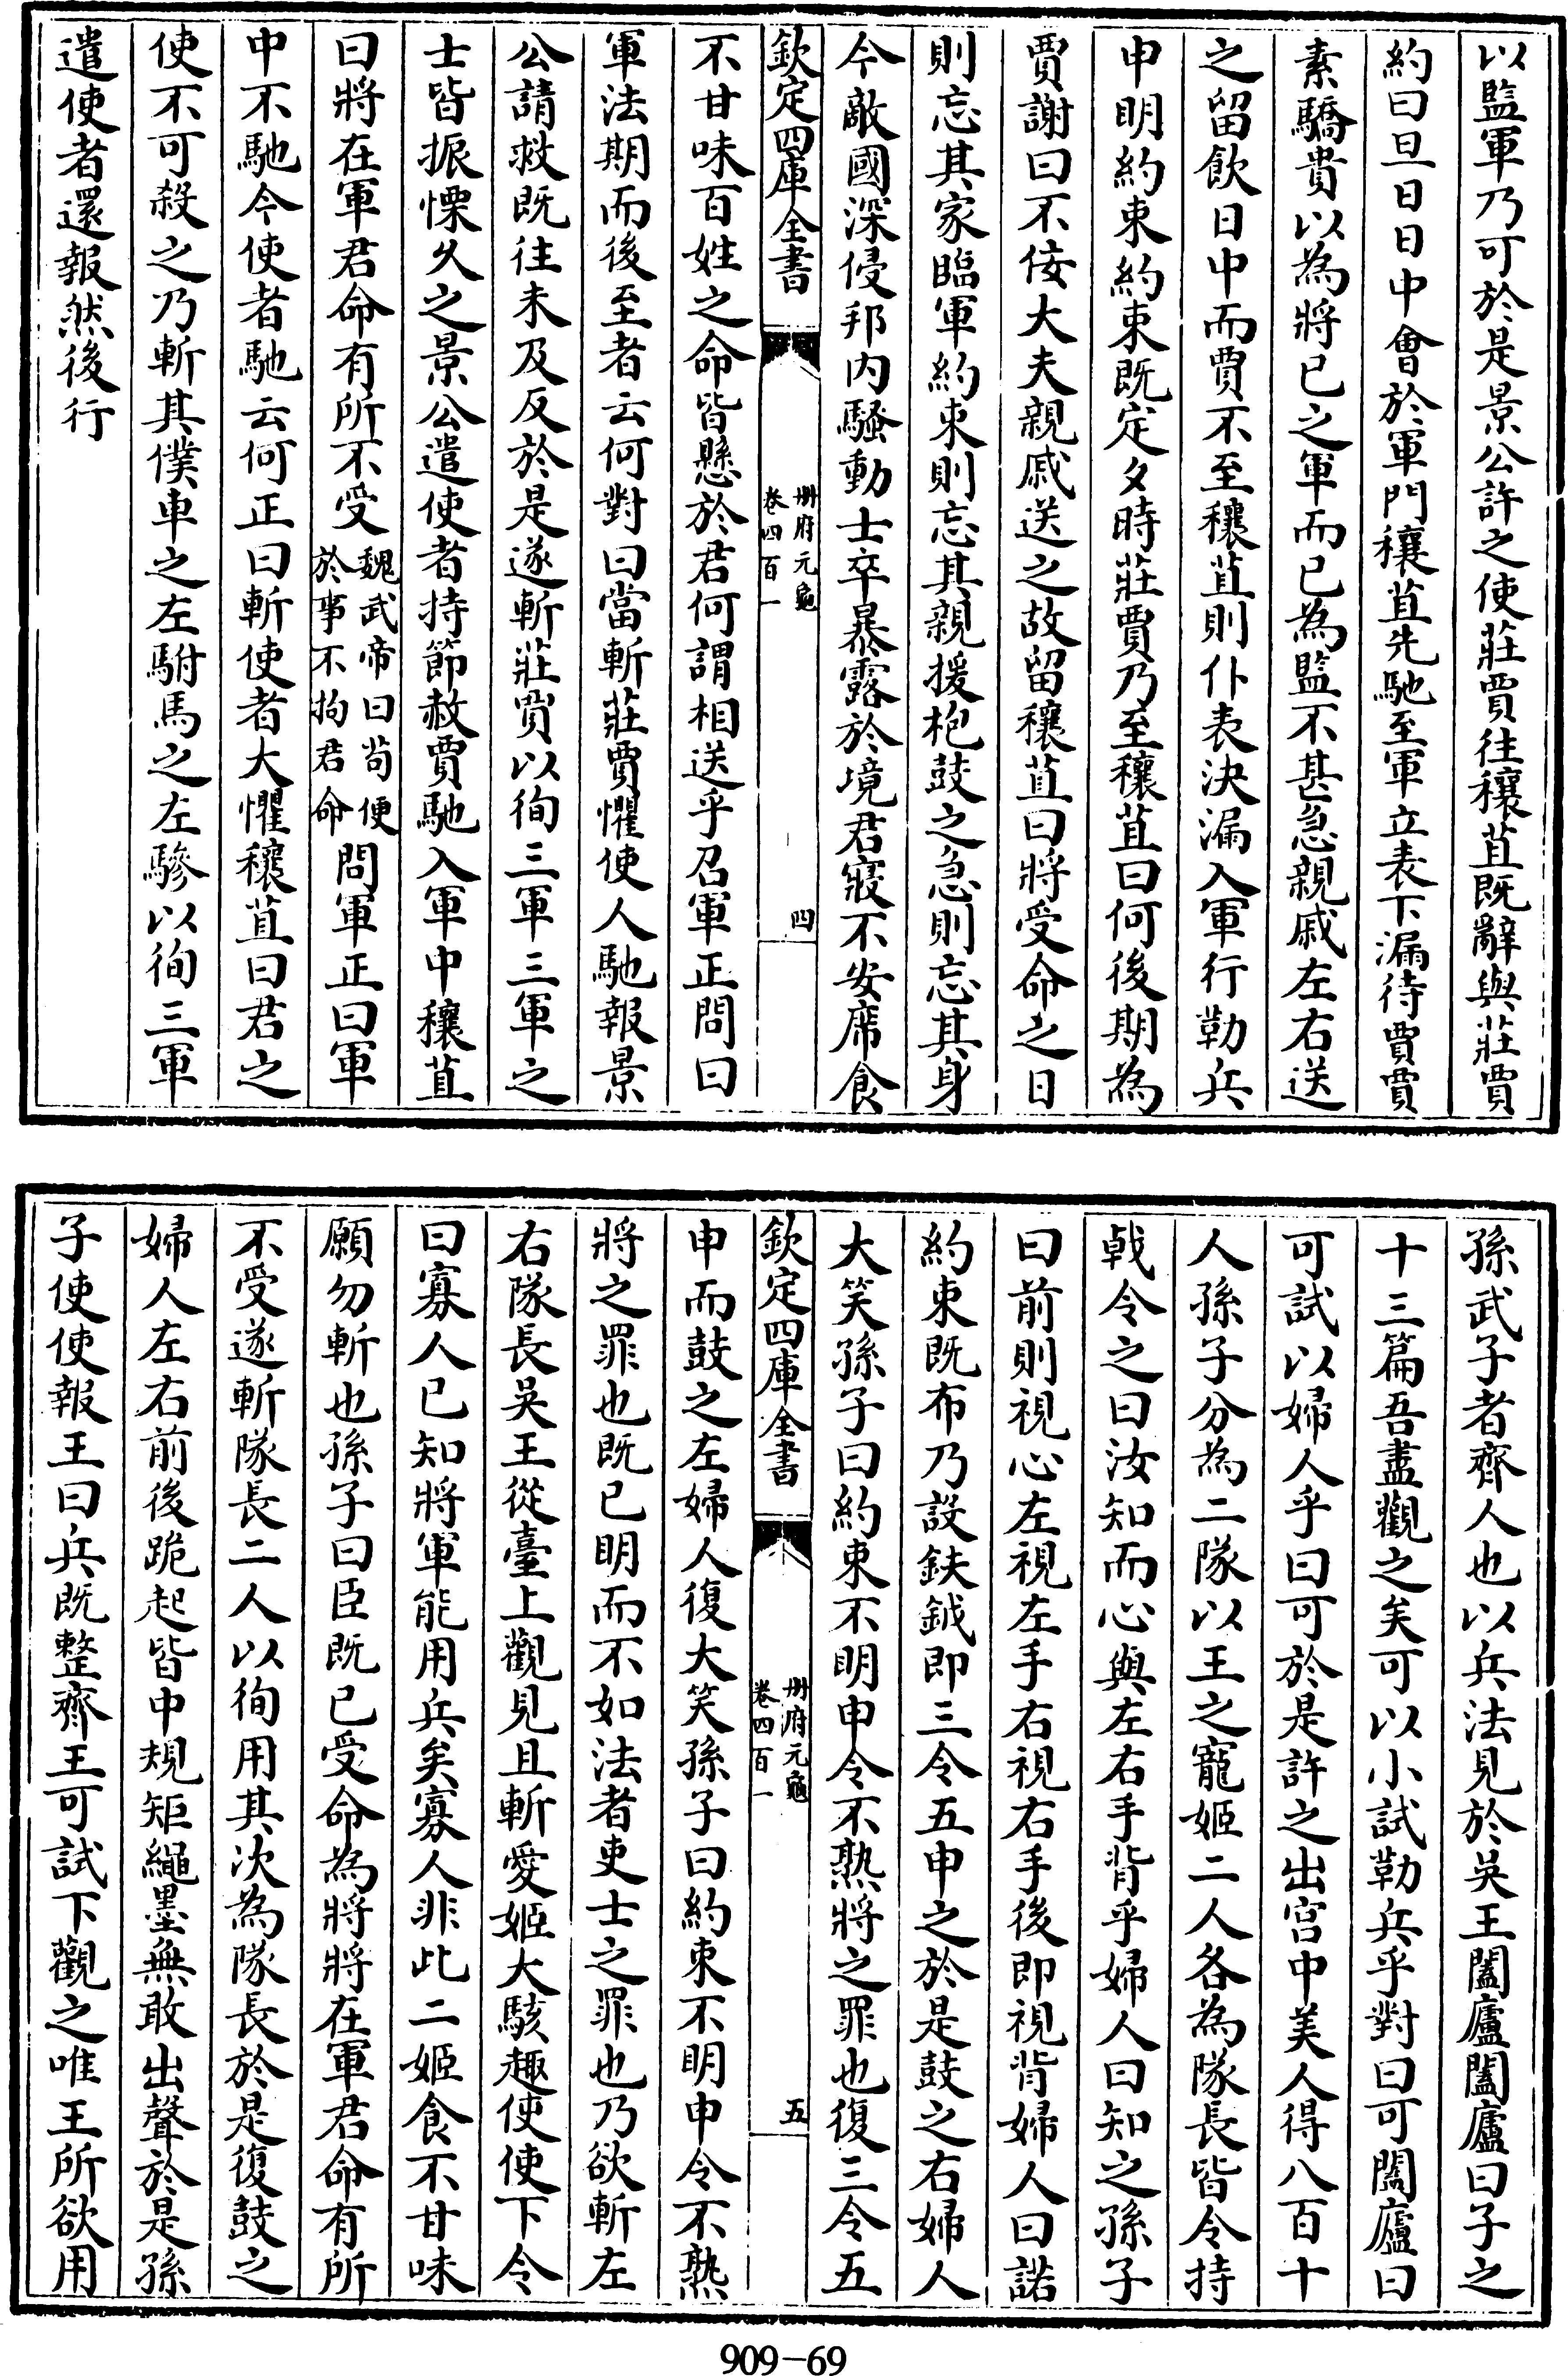 以監軍乃可於是景公許之使莊賈往穰苴既辭與莊賈
約曰旦日日中會於軍門穰苴先馳至軍立表下漏待賈賈
素驕貴以為將已之軍而已為監不甚急親戚左右送
之留飲日中而賈不至穰苴則仆表決漏入軍行勒兵
申明約束約束既定夕時莊賈乃至穰苴曰何後期為
賈謝曰不佞大夫親戚送之故留穰苴曰將受命之日
則忘其家臨軍約束則忘其親援枹鼓之急則忘其身
今敵國深侵邦内騷動士卒暴露於境君寢不安席食
欽定四庫全書
冊府元龜
卷四百一
四
不甘味百姓之命皆懸於君何謂相送乎召軍正問曰
軍法期而後至者云何對曰當斬莊賈懼使人馳報景
公請救既往未及反於是遂斬莊賈以徇三軍三軍之
士皆振慄久之景公遣使者持節赦賈馳入軍中穰苴
曰將在軍君命有所不受魏武帝曰苟便於事不拘君命問軍正曰軍
中不馳今使者馳云何正曰斬使者大懼穰苴曰君之
使不可殺之乃斬其僕車之左駙馬之左驂以徇三軍
遣使者還報然後行
孫武子者齊人也以兵法見於吳王闔廬闔廬曰子之
十三篇吾盡觀之矣可以小試勒兵乎對曰可闔廬曰
可試以婦人乎曰可於是許之出宫中美人得八百十
人孫子分為二隊以王之寵姬二人各為隊長皆令持
戟令之曰汝知而心與左右手背乎婦人曰知之孫子
曰前則視心左視左手右視右手後即視背婦人曰諾
約束既布乃設鈇鉞即三令五申之於是鼓之右婦人
大笑孫子曰約束不明申令不熟將之罪也復三令五
欽定四庫全書
冊府元龜
卷四百一
五
申而鼓之左婦人復大笑孫子曰約束不明申令不熟
將之罪也既已明而不如法者吏士之罪也乃欲斬左
右隊長吳王從臺上觀見且斬愛姬大駭趣使使下令
曰寡人已知將軍能用兵矣寡人非此二姬食不甘味
願勿斬也孫子曰臣既已受命為將將在軍君命有所
不受遂斬隊長二人以徇用其次為隊長於是復鼓之
婦人左右前後跪起皆中規矩繩墨無敢出聲於是孫
子使使報王曰兵既整齊王可試下觀之唯王所欲用
909-69